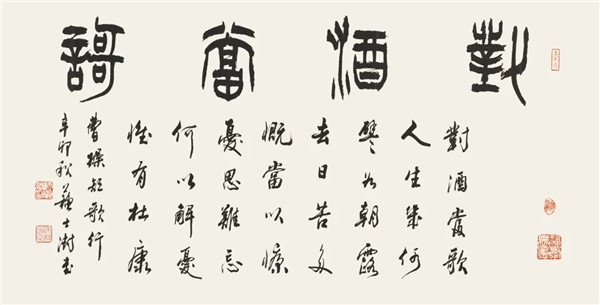 對酒當謌
對酒當歌
人生幾何
譬如朝露
去日苦多
慨當以慷
憂思難忘
何以解憂
惟有杜康
曹操短歌行
辛卯秋蘇士澍書